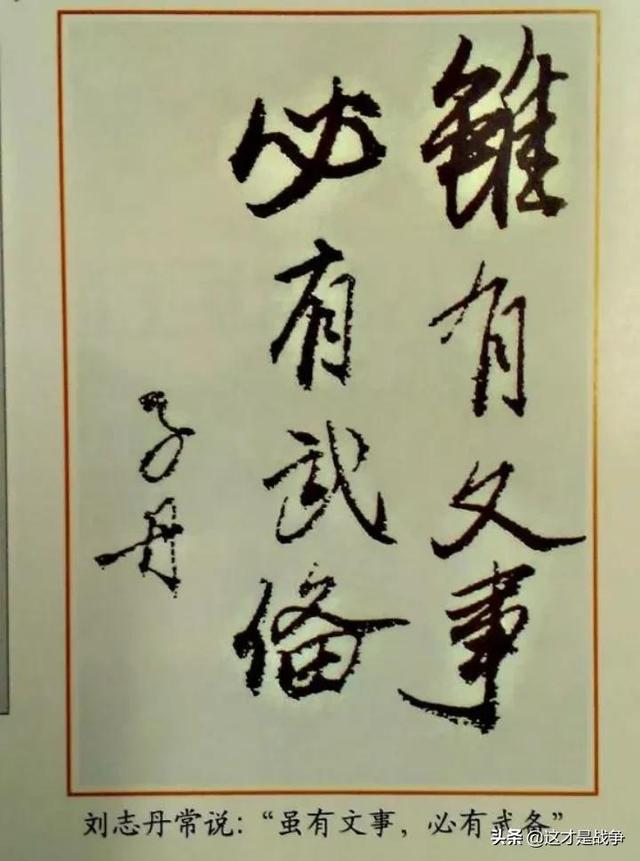 雖有文事
必有武備
子丹
刘志丹常说：“虽有文事，必有武备”
头条 @这才是战争